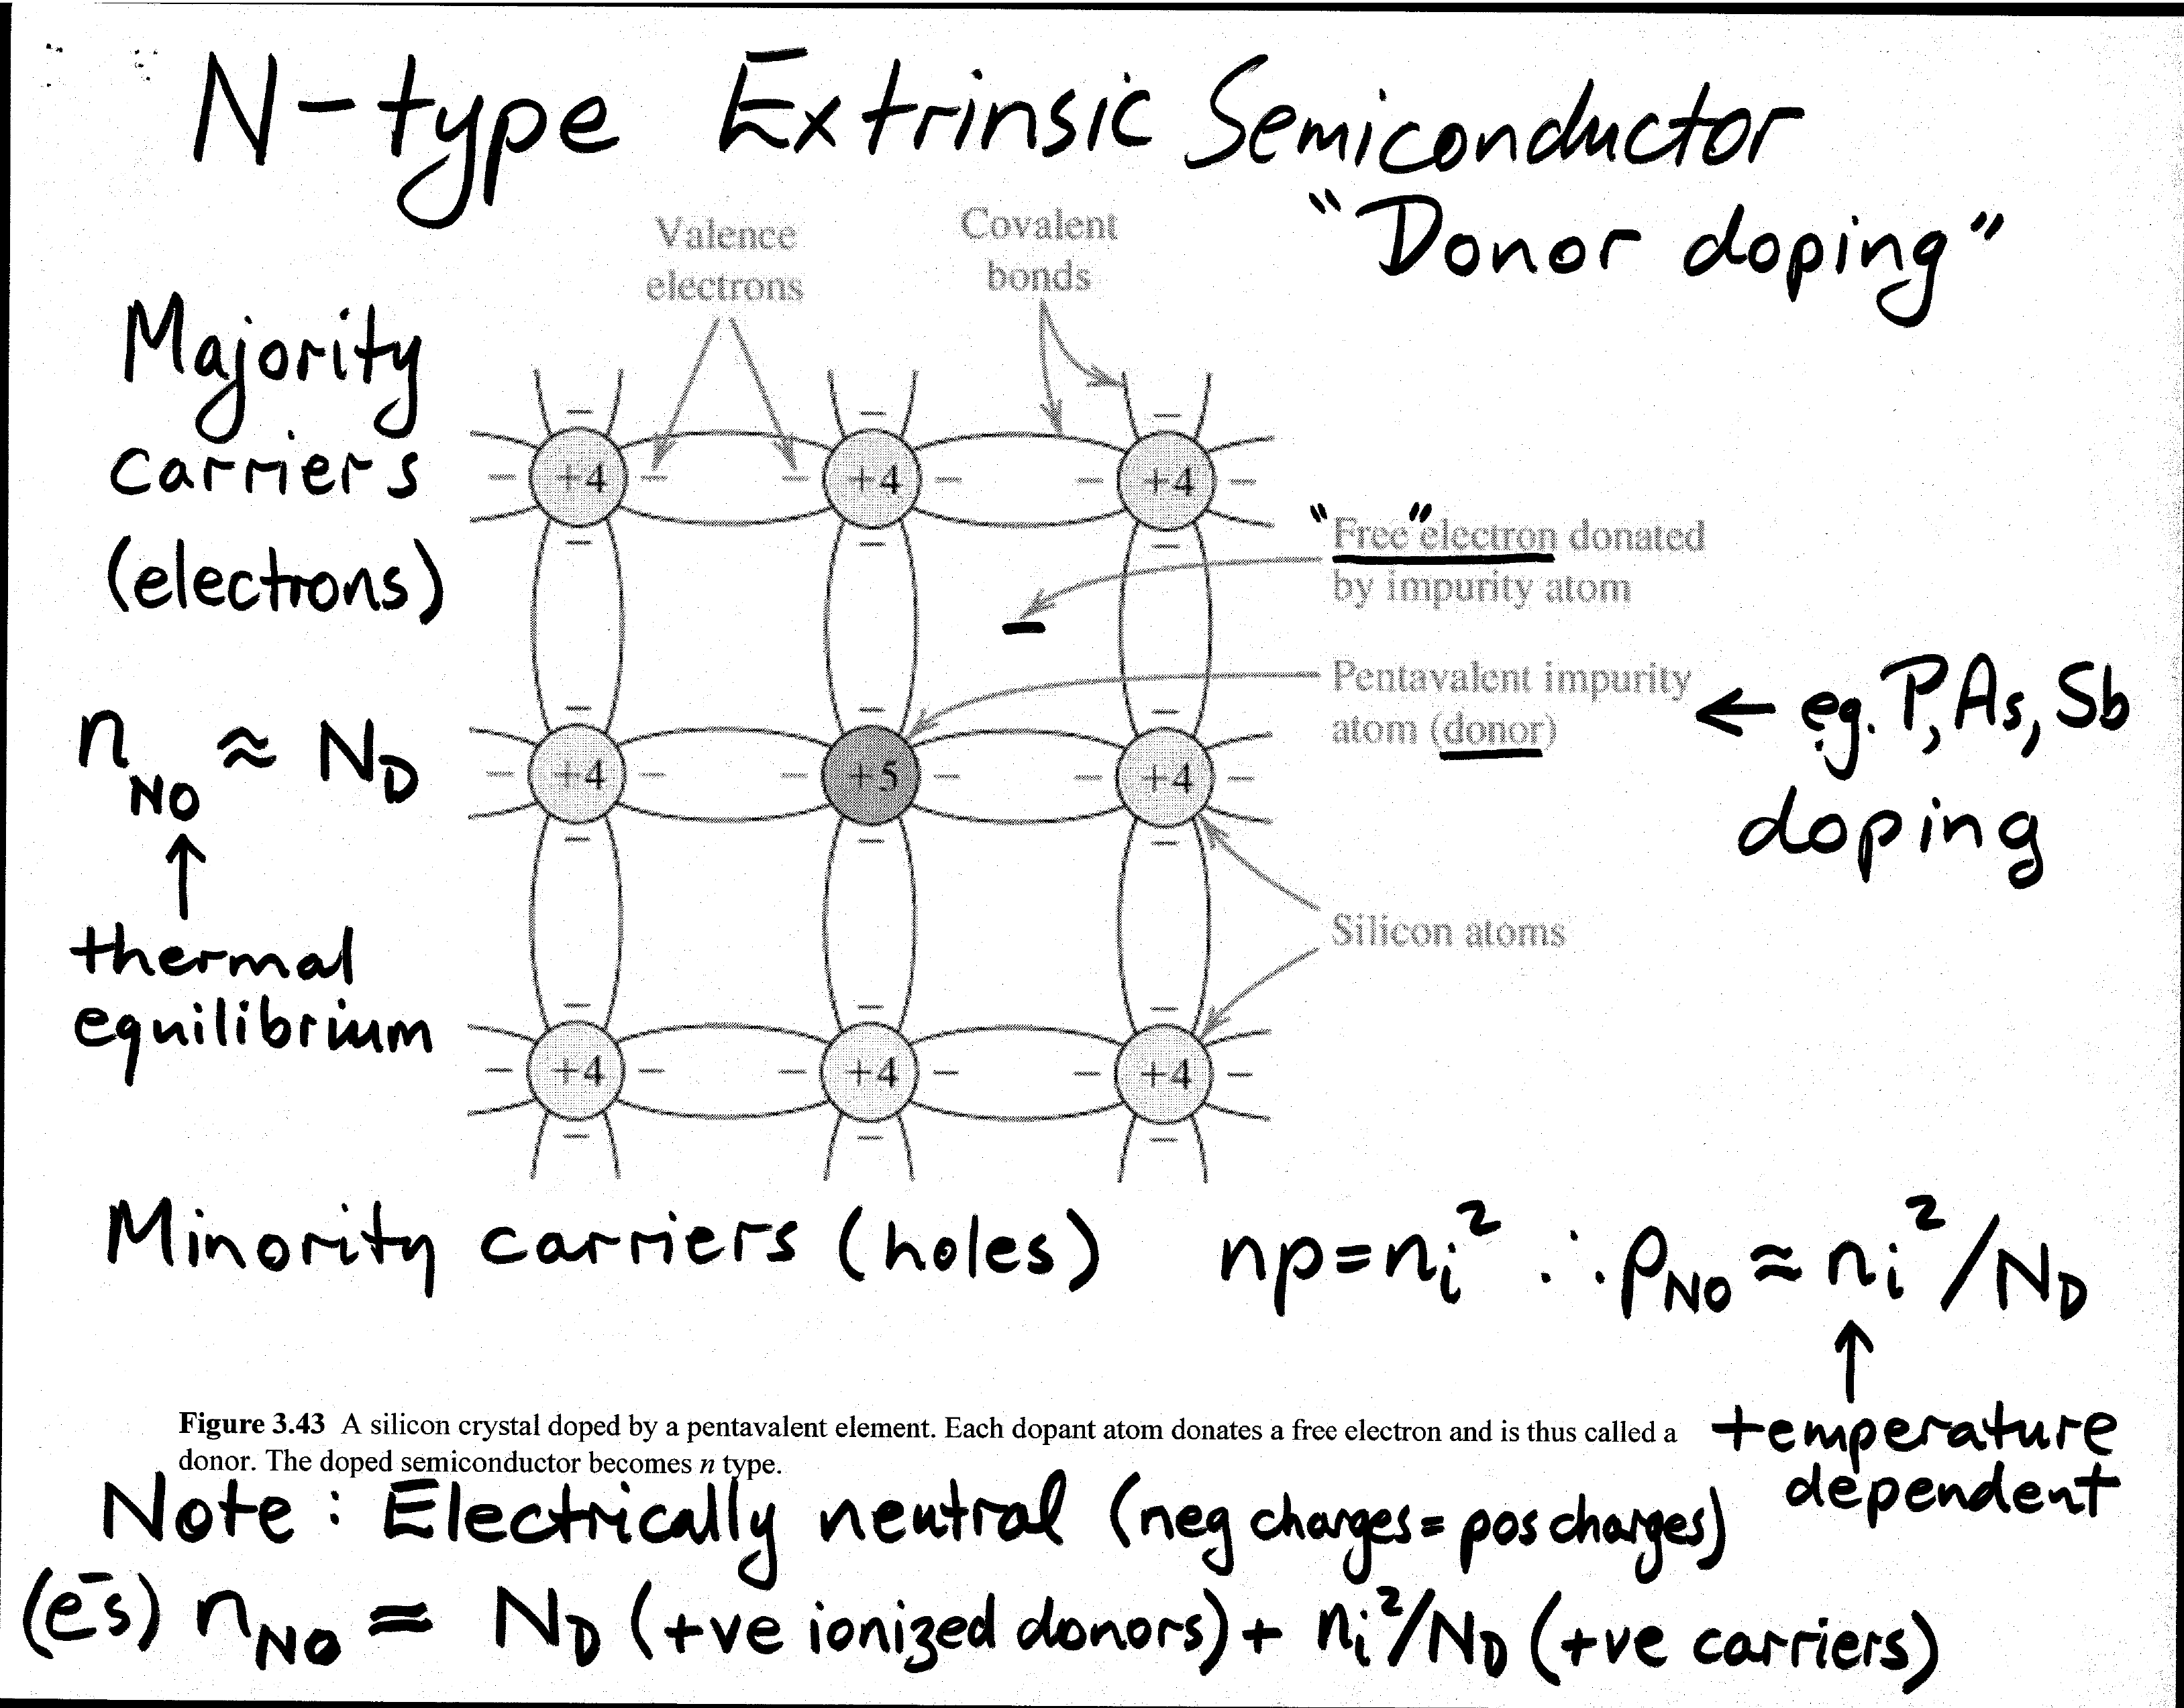 N-type Extrinsic Semiconductor
"Donor doping"
Valence
electrons
Covalent
bonds
Majority
carriers
(electrons)
+4 +4 +4
"Free" electron donated
by impurity atom
Pentavalent impurity
atom (donor)
← eg. P, As, Sb
doping
n_NO ≈ N_D
+4 +5 +4
↑
thermal
equilibrium
Silicon atoms
+4 +4 +4
Minority carriers (holes) np = n_i² ∴ p_NO ≈ n_i²/N_D
↑
temperature
dependent
Figure 3.43 A silicon crystal doped by a pentavalent element. Each dopant atom donates a free electron and is thus called a
donor. The doped semiconductor becomes n type.
Note: Electrically neutral (neg charges = pos charges)
(e⁻s) n_NO = N_D (+ve ionized donors) + n_i²/N_D (+ve carriers)